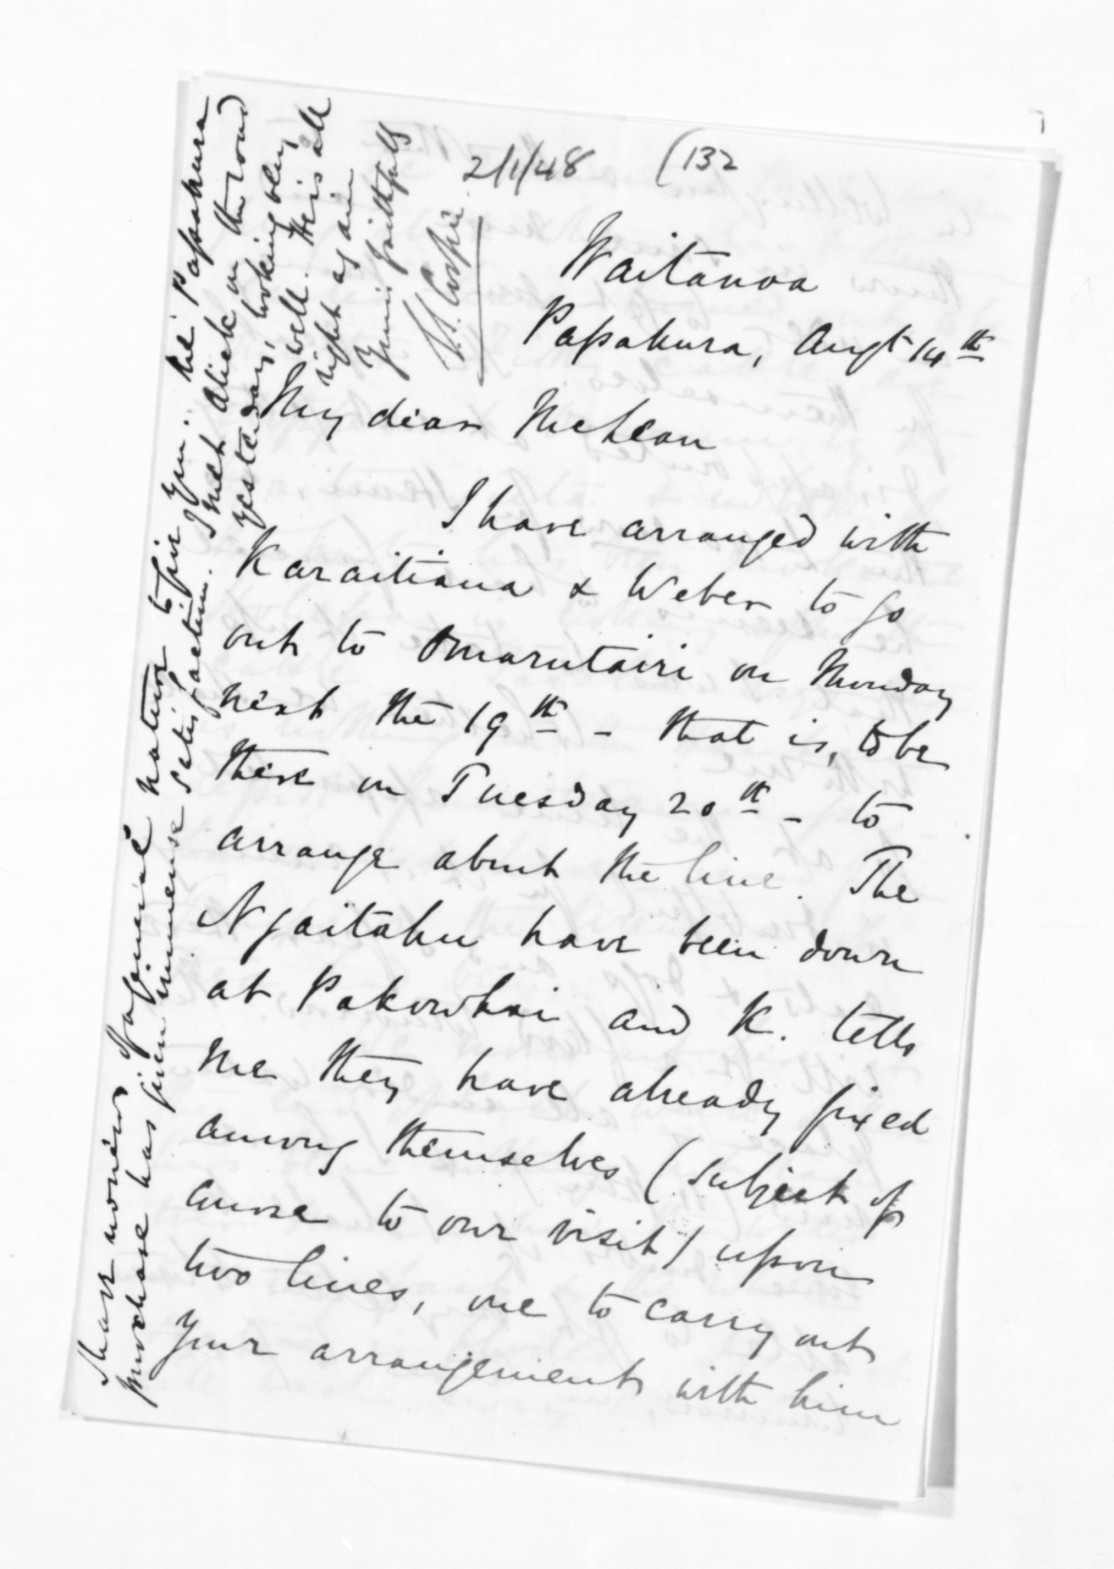 2/1/48 (132
Waitanoa
Papakura, Augt 14th
My dear McLean
I have arranged with
Karaitiana & Weber to go
out to Omarutairi on Monday
next the 19th - that is, to be
there on Tuesday 20th - to
arrange about the line. The
Ngaitahu have been down
at Pakowhai and K. tells
me they have already fixed
among themselves (subject of
course to our visit) upon
two lines, one to carry out
your arrangements with him
I have no news of a general nature to give you. The Papakura
purchase has given immense satisfaction. I met Alick on the road
yesterday, looking very
well. He is all
right again
Yours faithfully
S. Locke